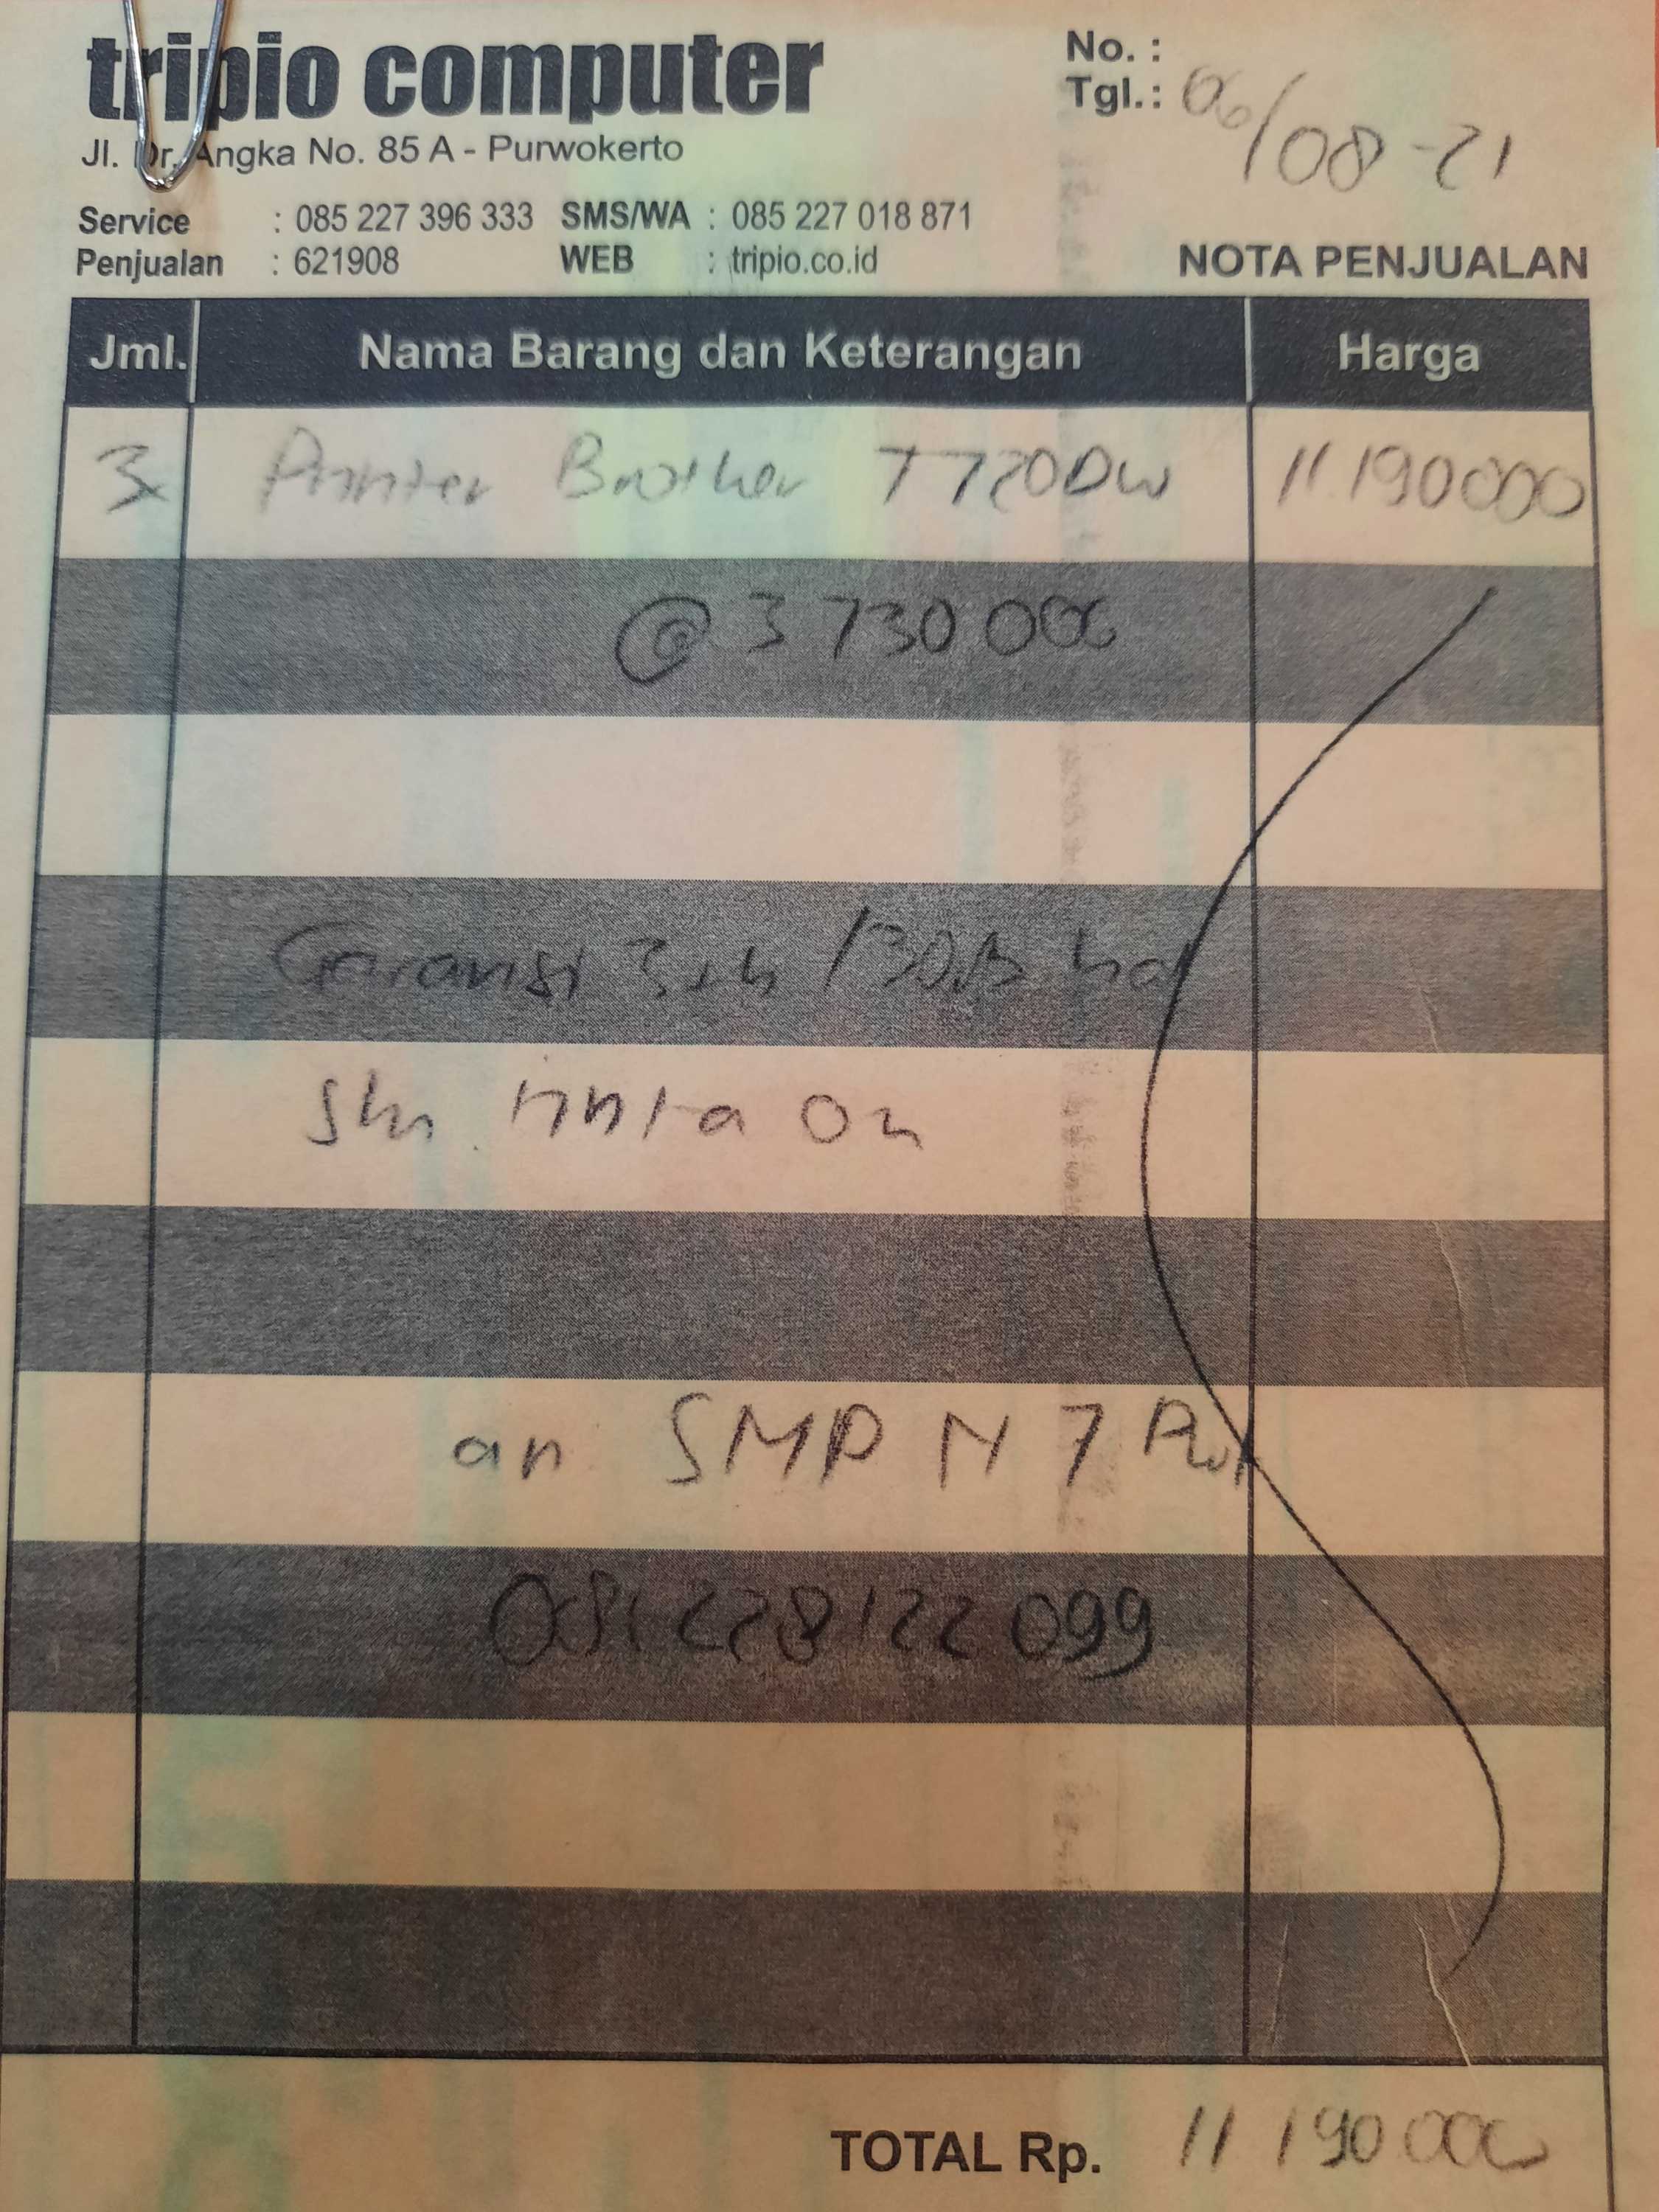 tripio computer
Jl. Dr. Angka No. 85 A - Purwokerto
No. :
Tgl. : 06/08-21
Service : 085 227 396 333 SMS/WA : 085 227 018 871
Penjualan : 621908 WEB : tripio.co.id
NOTA PENJUALAN
Jml. Nama Barang dan Keterangan Harga
3 Printer Brother T720DW 11.190000
@ 3 730 000
Garansi 3 th /30
tinta on
an SMP N 7 Pwt
081228122099
TOTAL Rp. 11 190 000